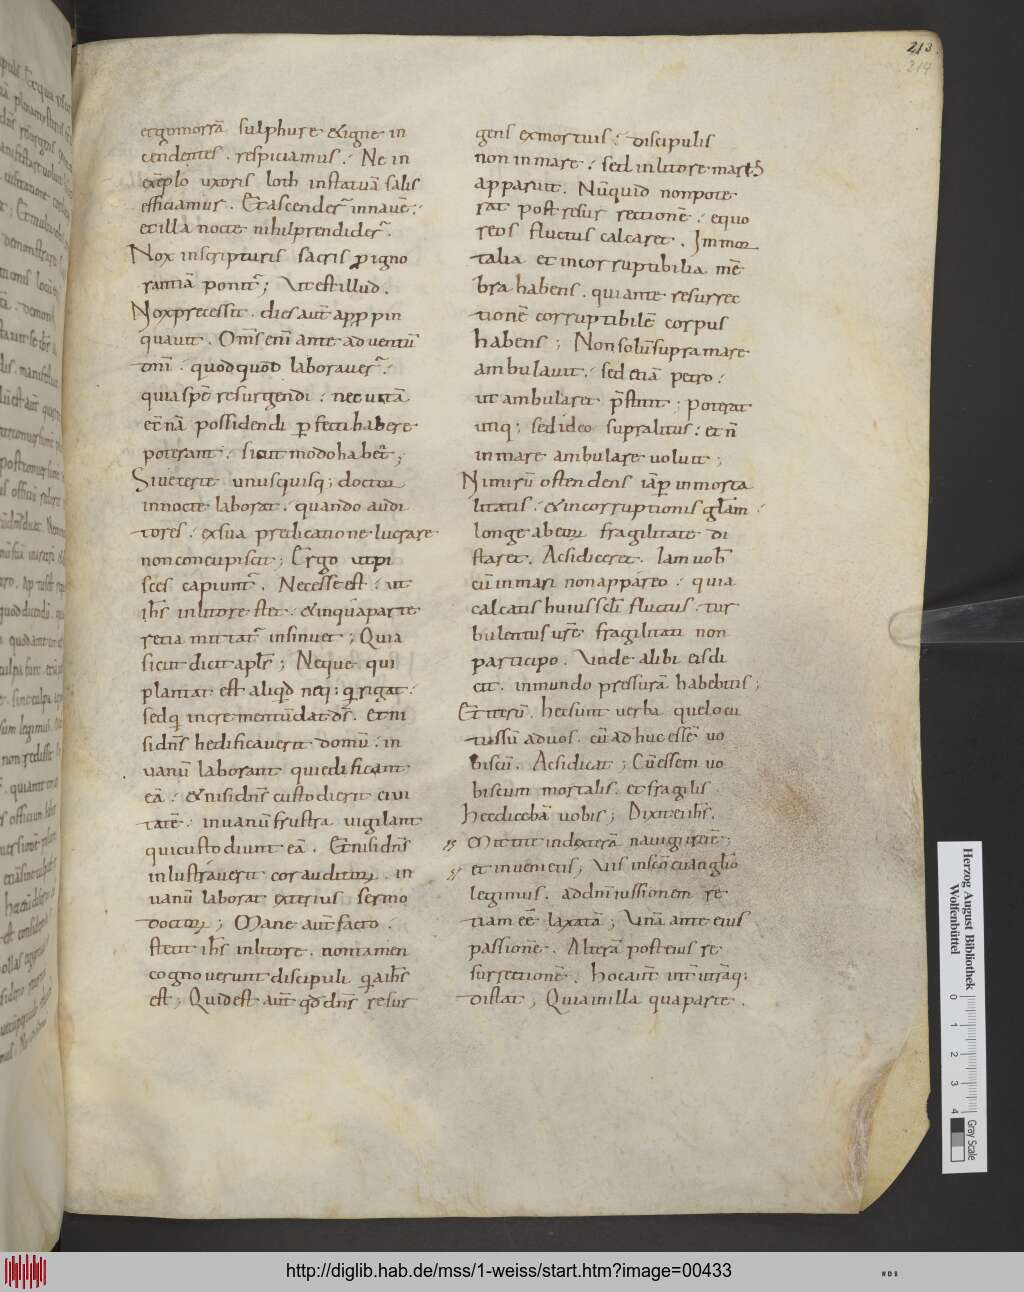 213.
214
etgomorrā sulphure & igne in
cendentes . respiciamus . Ne in
exēplo uxoris loth instatuā salis
efficiamur . Et ascender̄ innauē .
et illa nocte nihil prendider̄ .
Nox inscripturis sacris p igno
rantiā ponit̄ ; Vt est illud .
Nox precessit . dies aut̄ appropin
quauit . Om̄s enī ante aduentū
dn̄i . quod quod laborauer̄ .
quia spē resurgendi . nec uitā
etn̄ā possidendi p fecti habere
poterant . sicut modo habet̄ ;
Siue certe unusquisq; doctor
innocte laborat . quando audi
tores . exsua predicatione lucrare
non concupiscit ; Ergo ut pi
sces capiunt̄ . Necesse est . ut
ih̄s inlitore stet . & inquāparte
retia mittat̄ insinuet ; Quia
sicut dicit apl̄s ; Neque qui
plantat est aliqd neq; q rigat .
sedq incrementū dat d̄s . et ni
si dn̄s hedificauerit domū . in
uanū laborant qui edificant
eā . & nisi dn̄s custodierit ciui
tatē . inuanū frustra uigilant
qui custodiunt eā . Et nisi dn̄s
inlustrauerit cor auditorū . in
uanū laborat exterius sermo
doctorū ; Mane aut̄ facto .
stetit ih̄s inlitore . non tamen
cognouerunt discipuli qa ih̄s
est ; Quid est aut̄ qd dn̄s resur
gens exmortuis . discipulis
non inmare . sed inlitore maris
apparuit . Nūquid non pote
rat post resur rectionē . equo
reos fluctus calcaret . Inmor
talia et incorruptibilia mē
bra habens . qui ante resurrec
tionē corruptibilē corpus
habens ; Non solū supra mare
ambulauit . sed etiā petro .
ut ambularet p̄stitit ; Poterat
utiq; sed ideo supralitus . et n̄
inmare ambulare uoluit ;
Nimirū ostendens iā p inmorta
litatis . & incorruptionis gl̄am
longe abeorū fragilitate di
staret . Ac si diceret . Iam uob̄
cū inmari non appareo . quia
calcatis huius scl̄i fluctus . tur
bulentus ur̄e fragilitati non
participo . Vnde alibi eis di
cit . inmundo pressurā habebitis ;
Et iterū . hec sunt uerba que locu
tus sū aduos . cū adhuc essē uo
biscū . Ac si dicat ; Cū essem uo
biscum mortalis . et fragilis .
hec dicebā uobis ; Dixit ei ih̄s .
Mittite indexterā nauigii rete ;
et inuenietis ; Vis insc̄o euanglio
legimus . ad dn̄i iussionem re
tiam eē laxatā ; Vnā ante eius
passionē . Alterā post eius re
surrectionē . Hoc aut̄ int̄ utrāq;
distat ; Quia in illa qua parte .
Herzog August Bibliothek
Wolfenbüttel
0 1 2 3 4
Gray Scale
http://diglib.hab.de/mss/1-weiss/start.htm?image=00433